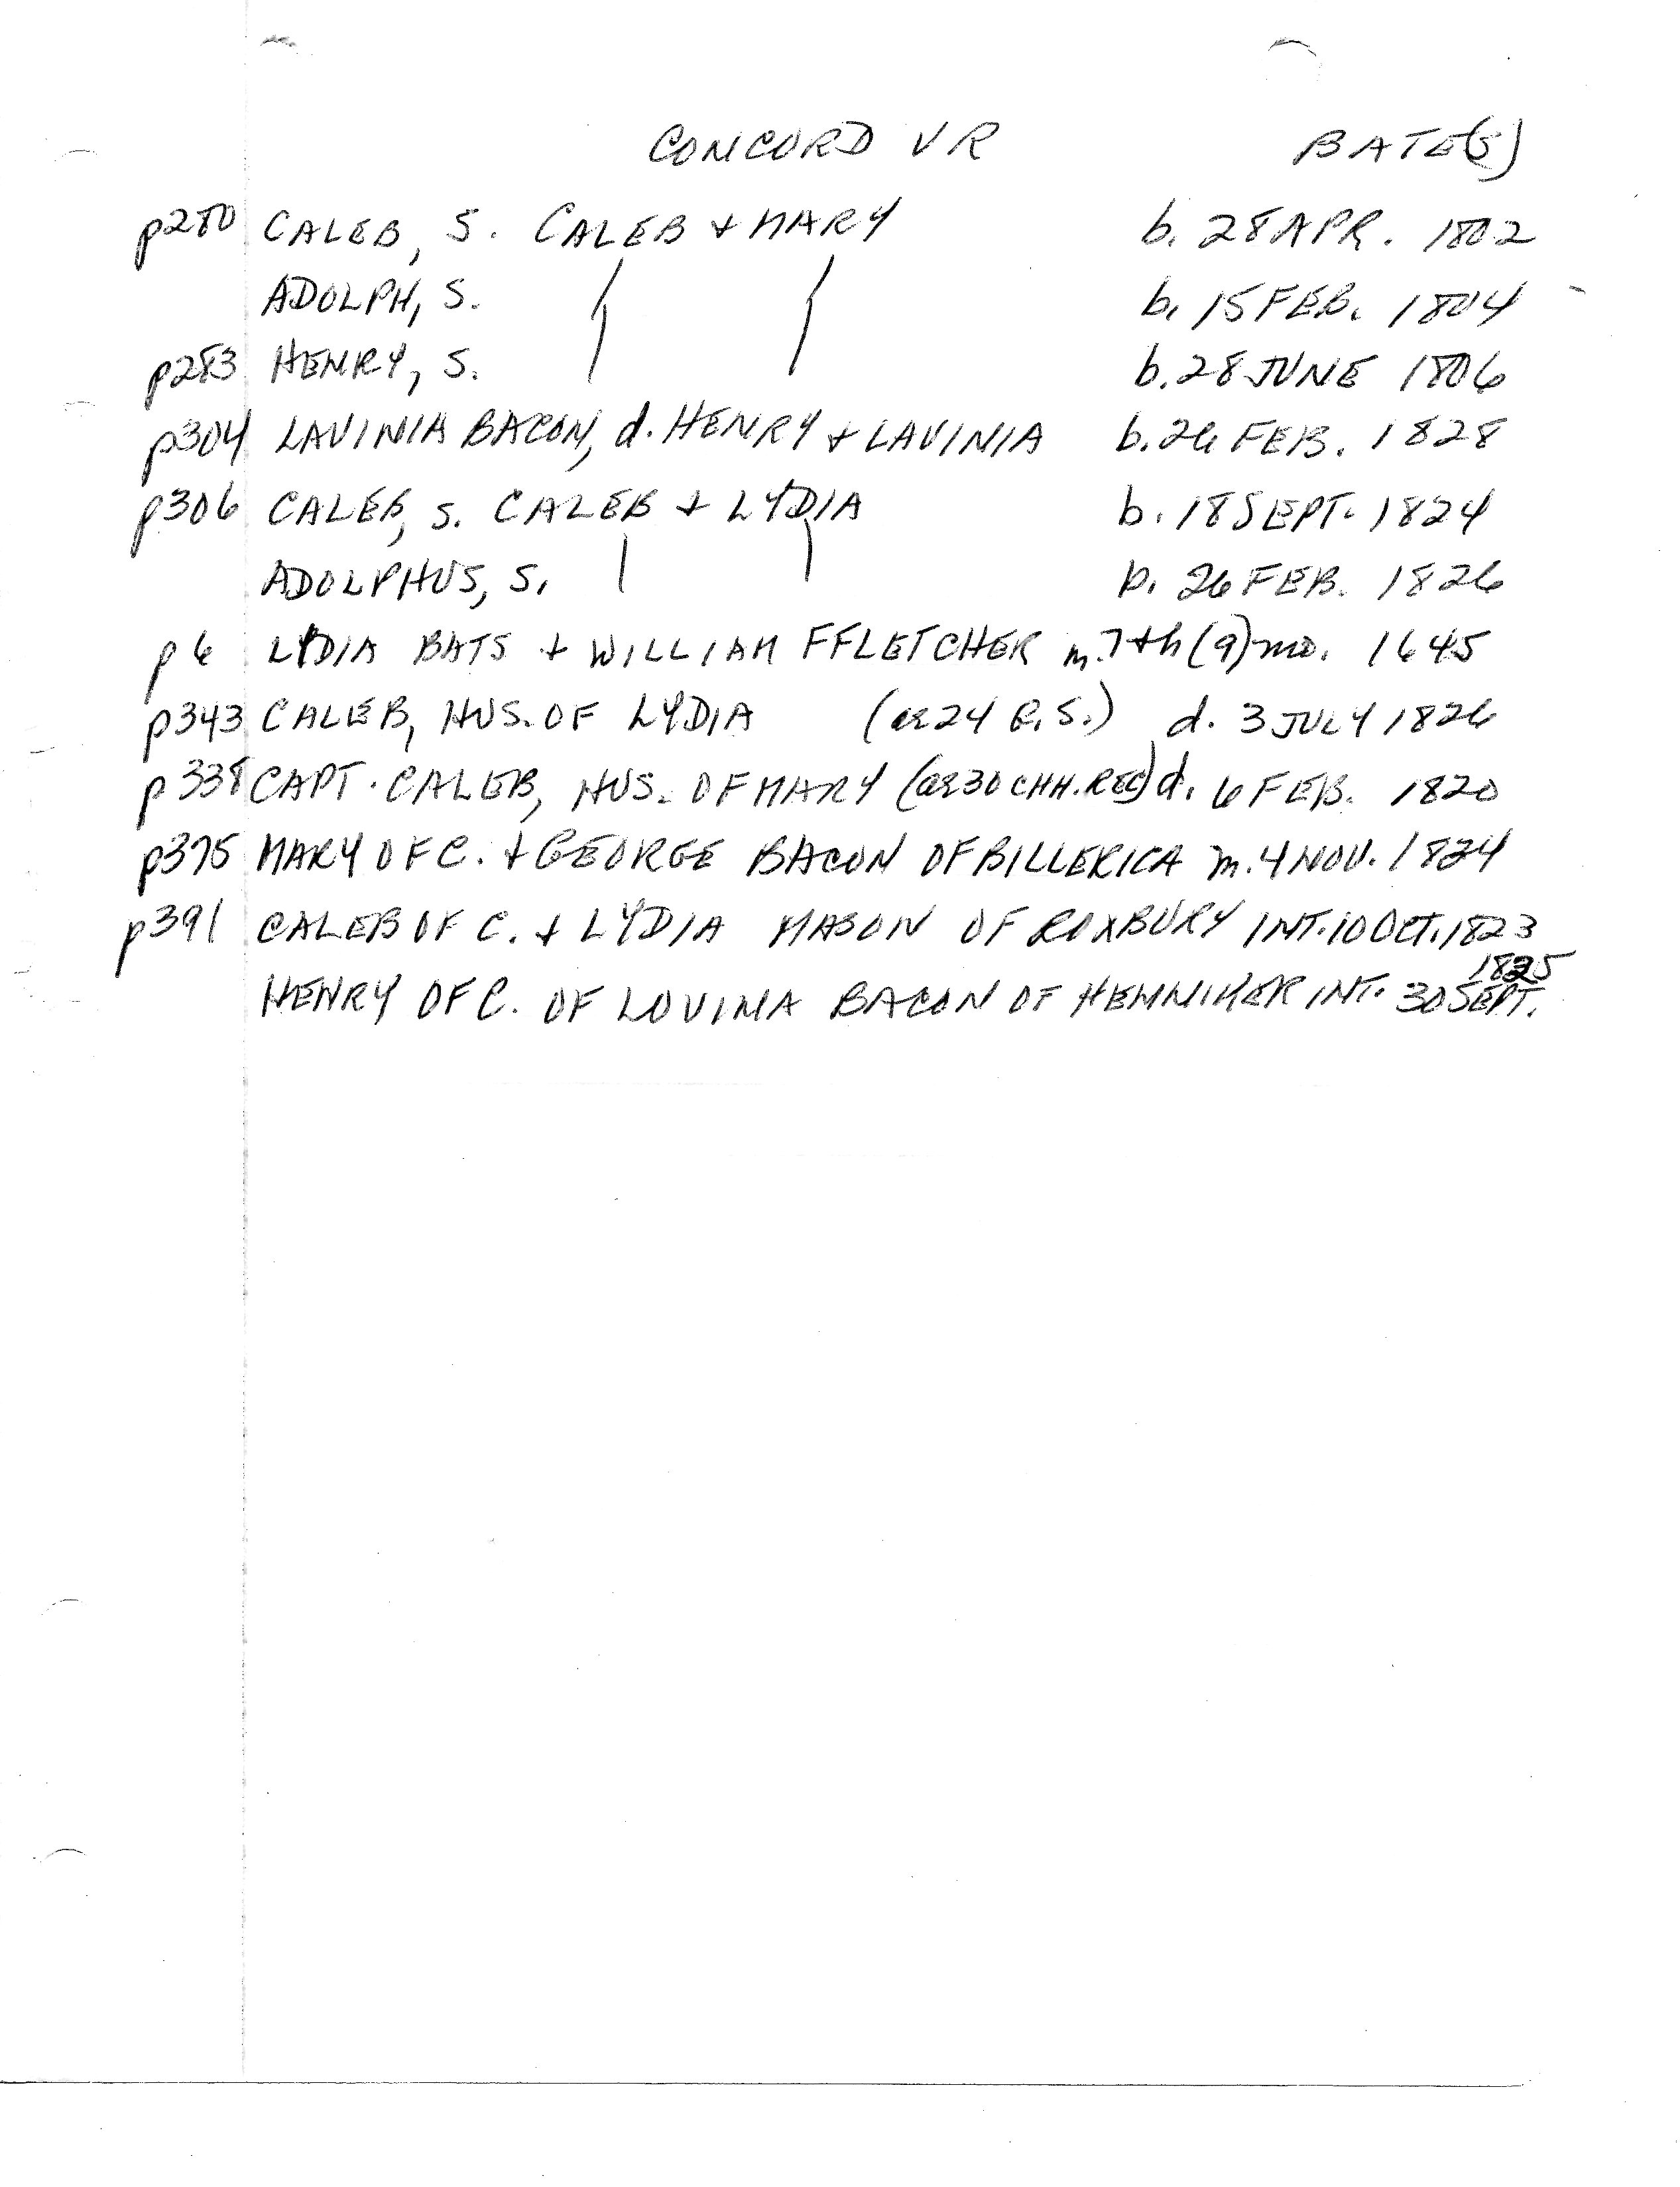 CONCORD VR BATE(S)
p280 CALEB, S. CALEB + MARY b. 28 APR. 1802
ADOLPH, S. b. 15 FEB. 1804
p283 HENRY, S. b. 28 JUNE 1806
p304 LAVINIA BACON, d. HENRY + LAVINIA b. 26 FEB. 1828
p306 CALEB, S. CALEB + LYDIA b. 18 SEPT. 1824
ADOLPHUS, S. b. 26 FEB. 1826
p6 LYDIA BATS + WILLIAM FFLETCHER m. 7th (9) mo. 1645
p343 CALEB, HUS. OF LYDIA (ae 24 G.S.) d. 3 JULY 1826
p338 CAPT. CALEB, HUS. OF MARY (ae 30 CHH. REC) d. 6 FEB. 1820
p375 MARY OF C. + GEORGE BACON OF BILLERICA m. 4 NOV. 1824
p391 CALEB OF C. + LYDIA MASON OF ROXBURY INT. 10 OCT. 1823
HENRY OF C. OF LOVINA BACON OF HENNIKER INT. 30 SEPT. 1825